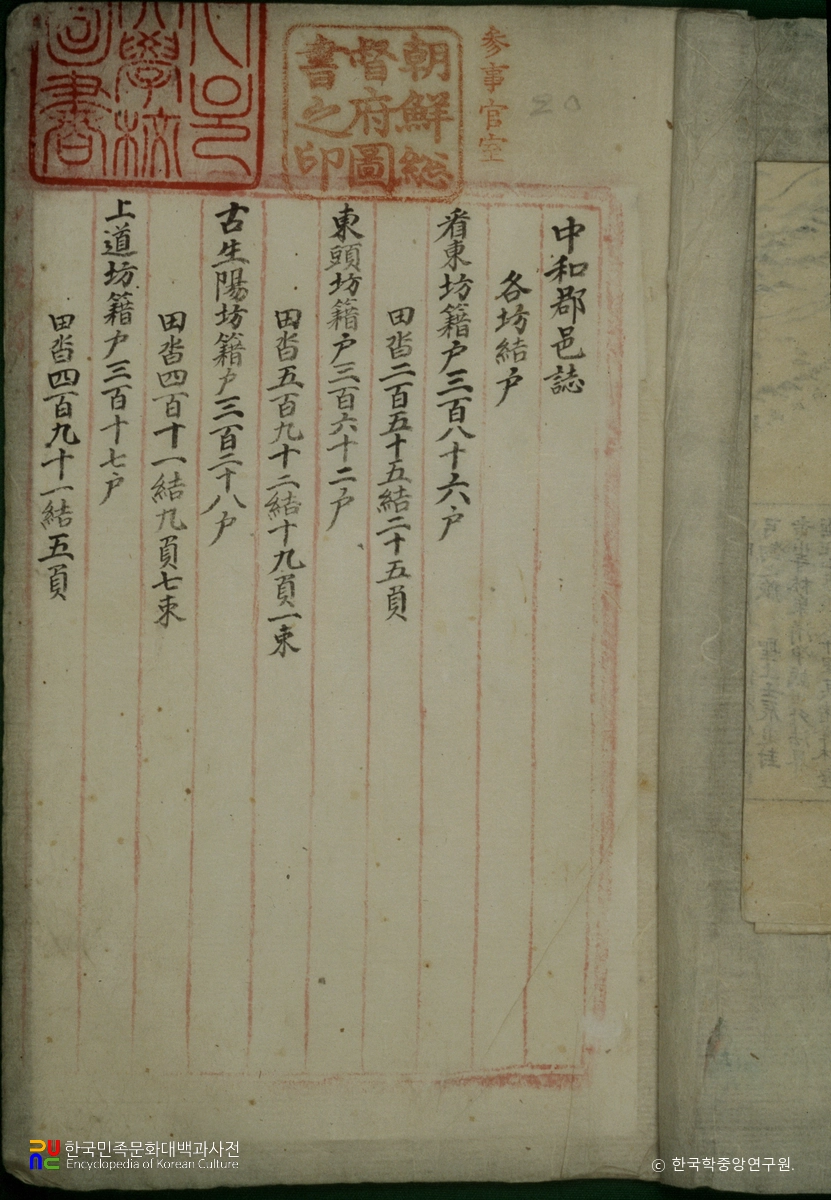 中和郡邑誌
各坊結户
看東坊籍户三百八十六户
田畓二百五十五結二十五負
東頭坊籍户三百六十二户
田畓五百九十二結十九負一束
古生陽坊籍户三百二十八户
田畓四百十一結九負七束
上道坊籍户三百十七户
田畓四百九十一結五負
參事官室
20
朝鮮総
督府圖
書之印
大學校
圖書
한국민족문화대백과사전
Encyclopedia of Korean Culture
© 한국학중앙연구원.